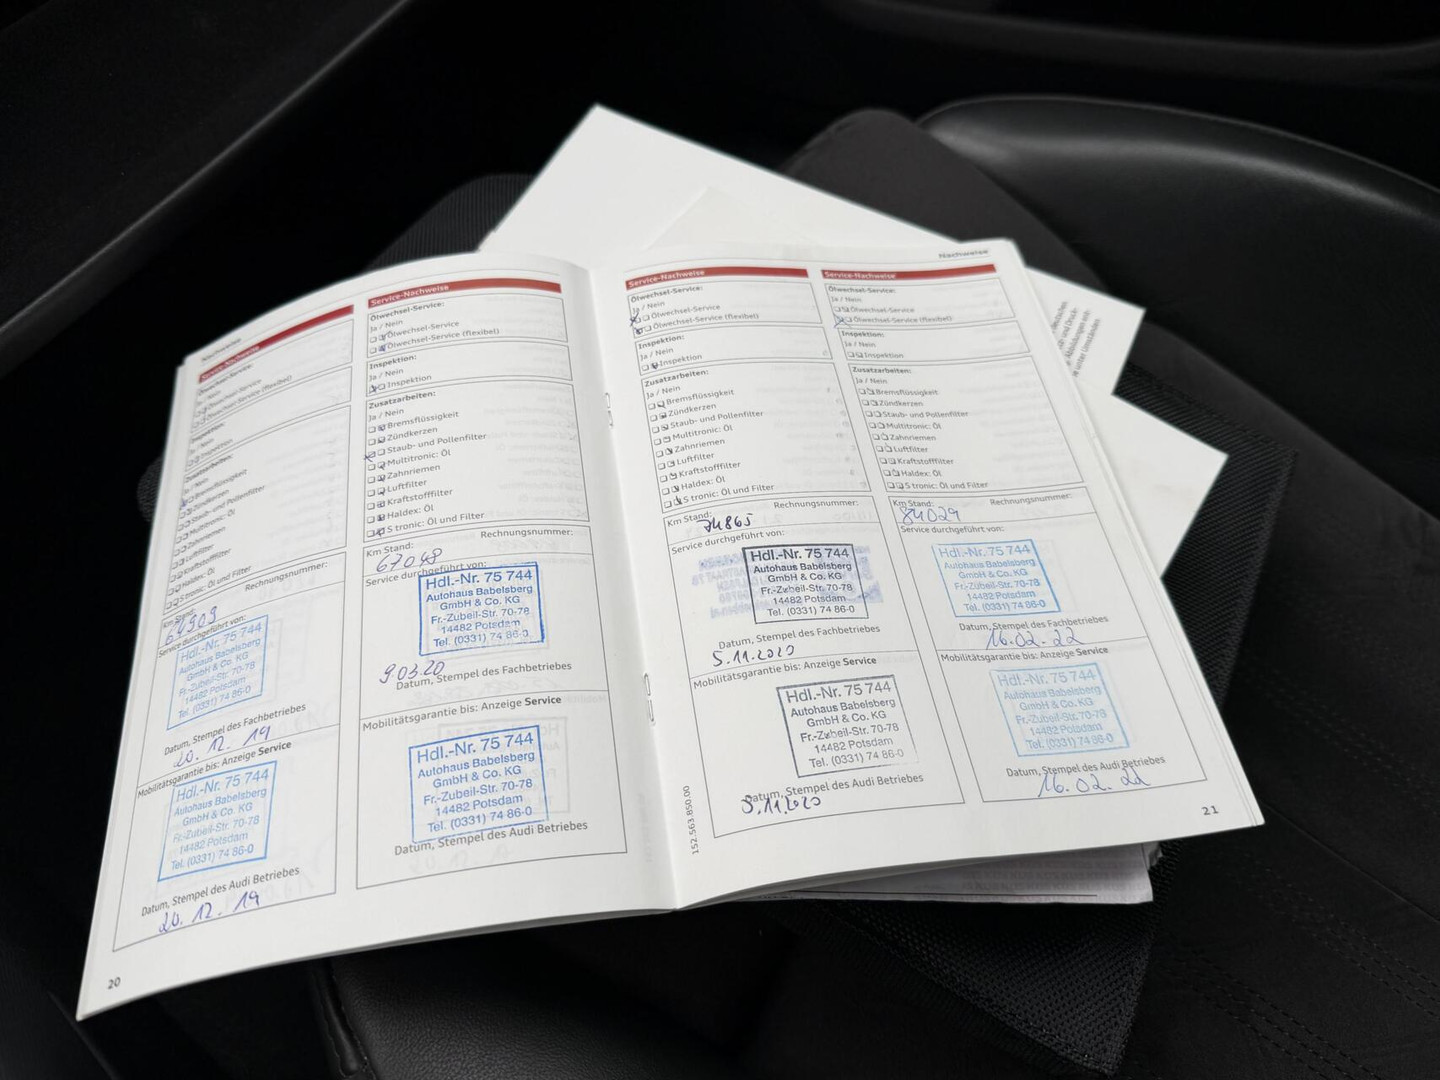 Nachweise
Service-Nachweise
Ölwechsel-Service:
Ja / Nein
Ölwechsel-Service
Ölwechsel-Service (flexibel)
Inspektion:
Ja / Nein
Inspektion
Zusatzarbeiten:
Ja / Nein
Bremsflüssigkeit
Zündkerzen
Staub- und Pollenfilter
Multitronic: Öl
Zahnriemen
Luftfilter
Kraftstofffilter
Haldex: Öl
S tronic: Öl und Filter
Rechnungsnummer:
Km Stand:
64909
Service durchgeführt von:
Hdl.-Nr. 75 744
Autohaus Babelsberg
GmbH & Co. KG
Fr.-Zubeil-Str. 70-78
14482 Potsdam
Tel. (0331) 74 86-0
Datum, Stempel des Fachbetriebes
20. 12. 19
Mobilitätsgarantie bis: Anzeige Service
Hdl.-Nr. 75 744
Autohaus Babelsberg
GmbH & Co. KG
Fr.-Zubeil-Str. 70-78
14482 Potsdam
Tel. (0331) 74 86-0
Datum, Stempel des Audi Betriebes
20. 12. 19
20
Service-Nachweise
Ölwechsel-Service:
Ja / Nein
Ölwechsel-Service
Ölwechsel-Service (flexibel)
Inspektion:
Ja / Nein
Inspektion
Zusatzarbeiten:
Ja / Nein
Bremsflüssigkeit
Zündkerzen
Staub- und Pollenfilter
Multitronic: Öl
Zahnriemen
Luftfilter
Kraftstofffilter
Haldex: Öl
S tronic: Öl und Filter
Rechnungsnummer:
Km Stand:
67048
Service durchgeführt von:
Hdl.-Nr. 75 744
Autohaus Babelsberg
GmbH & Co. KG
Fr.-Zubeil-Str. 70-78
14482 Potsdam
Tel. (0331) 74 86-0
9.03.20
Datum, Stempel des Fachbetriebes
Mobilitätsgarantie bis: Anzeige Service
Hdl.-Nr. 75 744
Autohaus Babelsberg
GmbH & Co. KG
Fr.-Zubeil-Str. 70-78
14482 Potsdam
Tel. (0331) 74 86-0
Datum, Stempel des Audi Betriebes
Service-Nachweise
Ölwechsel-Service:
Ja / Nein
Ölwechsel-Service
Ölwechsel-Service (flexibel)
Inspektion:
Ja / Nein
Inspektion
Zusatzarbeiten:
Ja / Nein
Bremsflüssigkeit
Zündkerzen
Staub- und Pollenfilter
Multitronic: Öl
Zahnriemen
Luftfilter
Kraftstofffilter
Haldex: Öl
S tronic: Öl und Filter
Km Stand: Rechnungsnummer:
74865
Service durchgeführt von:
Hdl.-Nr. 75 744
Autohaus Babelsberg
GmbH & Co. KG
Fr.-Zubeil-Str. 70-78
14482 Potsdam
Tel. (0331) 74 86-0
Datum, Stempel des Fachbetriebes
5.11.2020
Mobilitätsgarantie bis: Anzeige Service
Hdl.-Nr. 75 744
Autohaus Babelsberg
GmbH & Co. KG
Fr.-Zubeil-Str. 70-78
14482 Potsdam
Tel. (0331) 74 86-0
Datum, Stempel des Audi Betriebes
5.11.2020
152.563.850.00
Nachweise
Service-Nachweise
Ölwechsel-Service:
Ja / Nein
Ölwechsel-Service
Ölwechsel-Service (flexibel)
Inspektion:
Ja / Nein
Inspektion
Zusatzarbeiten:
Ja / Nein
Bremsflüssigkeit
Zündkerzen
Staub- und Pollenfilter
Multitronic: Öl
Zahnriemen
Luftfilter
Kraftstofffilter
Haldex: Öl
S tronic: Öl und Filter
Km Stand: Rechnungsnummer:
84029
Service durchgeführt von:
Hdl.-Nr. 75 744
Autohaus Babelsberg
GmbH & Co. KG
Fr.-Zubeil-Str. 70-78
14482 Potsdam
Tel. (0331) 74 86-0
Datum, Stempel des Fachbetriebes
16.02.22
Mobilitätsgarantie bis: Anzeige Service
Hdl.-Nr. 75 744
Autohaus Babelsberg
GmbH & Co. KG
Fr.-Zubeil-Str. 70-78
14482 Potsdam
Tel. (0331) 74 86-0
Datum, Stempel des Audi Betriebes
16.02.22
21